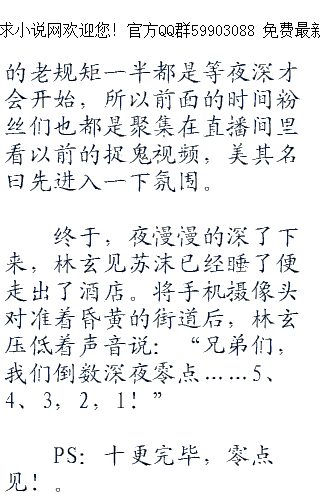 求小说网欢迎您！官方QQ群59903088 免费最新
的老规矩一半都是等夜深才
会开始，所以前面的时间粉
丝们也都是聚集在直播间里
看以前的捉鬼视频，美其名
曰先进入一下氛围。
终于，夜漫漫的深了下
来，林玄见苏沫已经睡了便
走出了酒店。将手机摄像头
对准着昏黄的街道后，林玄
压低着声音说：“兄弟们，
我们倒数深夜零点……5、
4、3，2，1！”
PS：十更完毕，零点
见！。